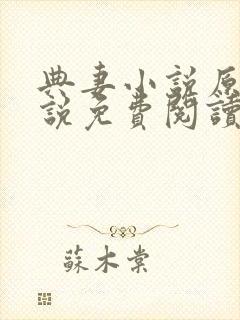 典妻小说原
說免費閱讀
蘇木棠